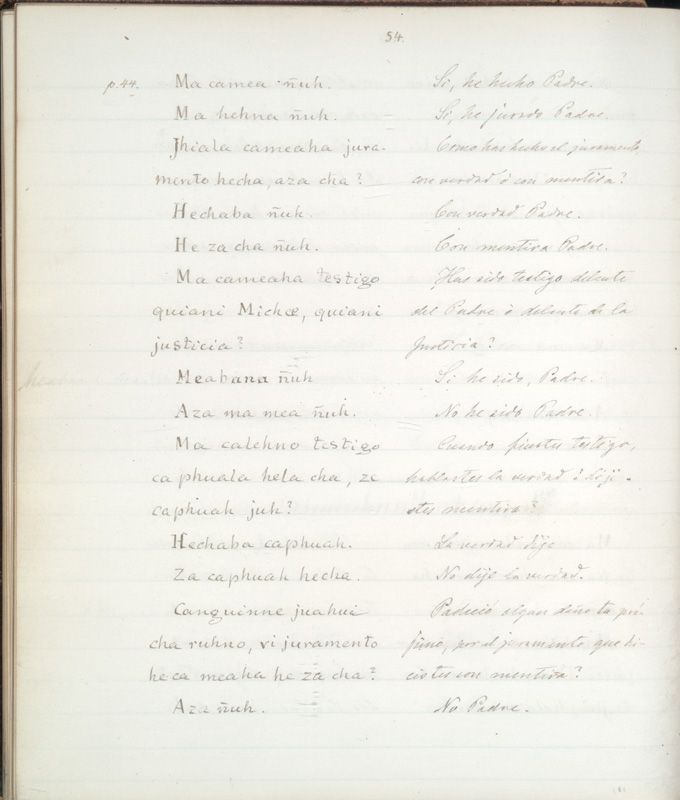 54.
p.44. Ma camea ñuh. Si, he hecho Padre.
Ma hehna ñuh. Si, he jurado Padre.
Jhiala cameaha jura- Como has hecho el juramento,
mento hecha, aza cha? con verdad ó con mentira?
Hechaba ñuh. Con verdad Padre.
He za cha ñuh. Con mentira Padre.
Ma cameaha testigo Has sido testigo delante
quiani Michæ, quiani del Padre ò delante de la
justicia? Justicia?
Meabana ñuh Si he sido, Padre.
Aza ma mea ñuh. No he sido Padre.
Ma calehno testigo Cuando fuistes testigo,
ca phuala hela cha, ze hablastes la verdad ó diji-
caphuah juh? stes mentira?
Hechaba caphuah. La verdad dije
Za caphuah hecha. No dije la verdad.
Canguinne juahui Padeció algun daño tu pró-
cha ruhno, vi juramento jimo, por el juramento que hi-
he ca meaha he za cha? cistes con mentira?
Aza ñuh. No Padre.